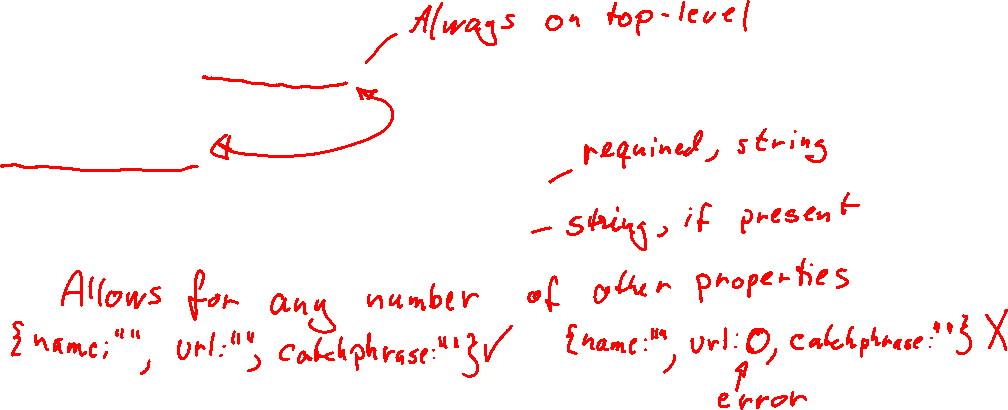 Always on top-level
required, string
string, if present
Allows for any number of other properties
{name:"", url:"", catchphrase:""}✓ {name:"", url:0, catchphrase:""} X
error